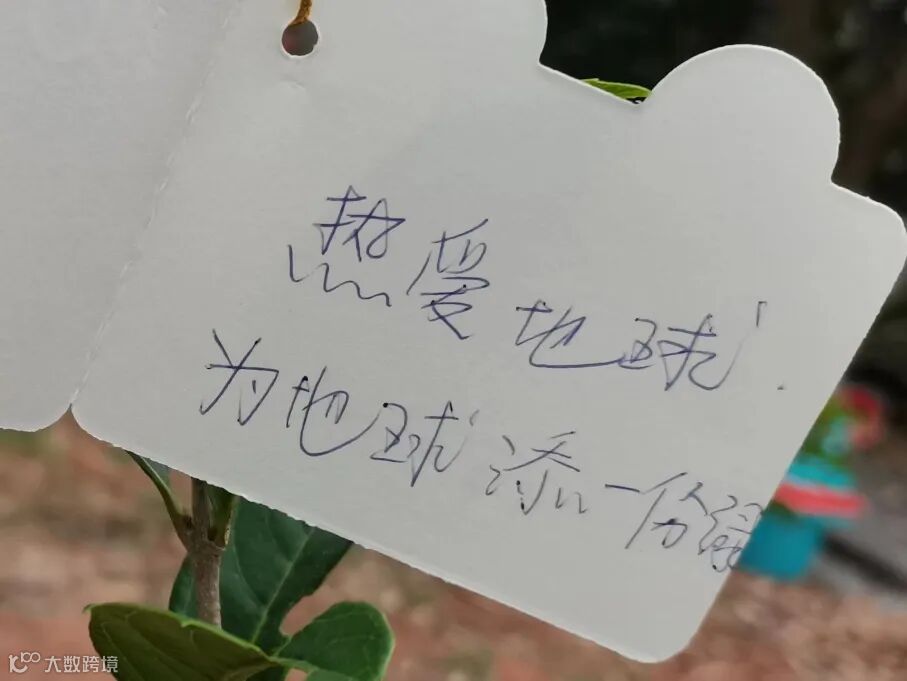 热爱地球.
为地球添一份绿
大数跨境